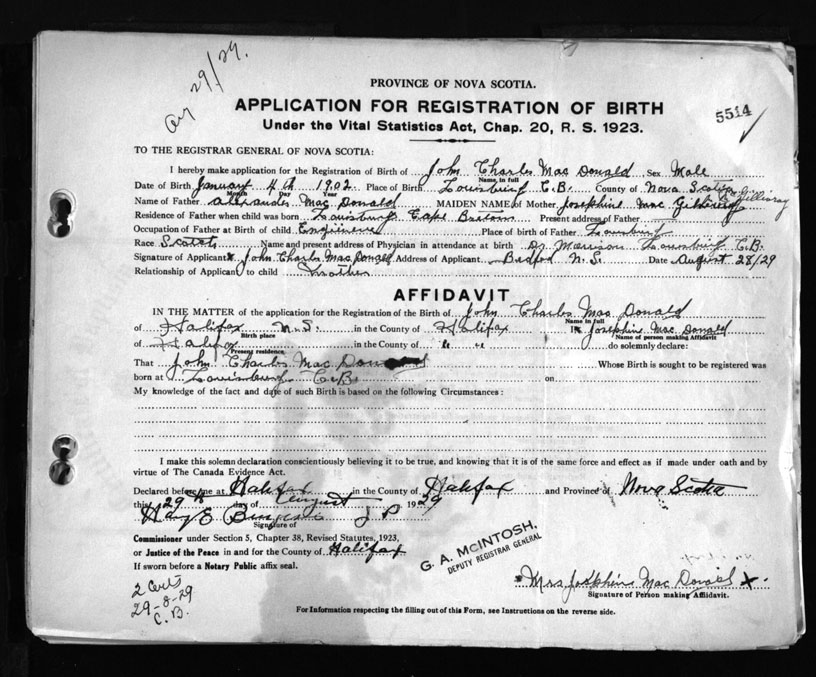 Aug 29/29.
PROVINCE OF NOVA SCOTIA.
APPLICATION FOR REGISTRATION OF BIRTH
5514
Under the Vital Statistics Act, Chap. 20, R. S. 1923.
TO THE REGISTRAR GENERAL OF NOVA SCOTIA:
I hereby make application for the Registration of Birth of John Charles Mac Donald Sex Male
Name in full
Date of Birth January 4th 1902 Place of Birth Louisburg C.B. County of Nova Scotia
Month Day Year
Name of Father Alexander Mac Donald MAIDEN NAME of Mother Josephine Mac Gillivray
Residence of Father when child was born Louisburg Cape Breton Present address of Father
Occupation of Father at Birth of child Place of birth of Father Louisburg
Race Scotch Name and present address of Physician in attendance at birth Dr. Louisburg C.B.
Signature of Applicant x John Charles Mac Donald Address of Applicant Bedford N.S. Date August 28/29
Relationship of Applicant to child Mother
AFFIDAVIT
IN THE MATTER of the application for the Registration of Birth of John Charles Mac Donald
Name in full
of Halifax N.S. in the County of Halifax I, Josephine Mac Donald
Birth place Name of person making Affidavit
of Halifax in the County of do solemnly declare:
Present residence
That John Charles Mac Donald Whose Birth is sought to be registered was
born at Louisburg C.B. on
My knowledge of the fact and date of such Birth is based on the following Circumstances:
I make this solemn declaration conscientiously believing it to be true, and knowing that it is of the same force and effect as if made under oath and by
virtue of The Canada Evidence Act.
Declared before me at Halifax in the County of Halifax and Province of Nova Scotia
this 29th August 1929
J P
Signature of
Commissioner under Section 5, Chapter 38, Revised Statutes, 1923,
or Justice of the Peace in and for the County of Halifax
If sworn before a Notary Public affix seal.
G. A. McINTOSH,
DEPUTY REGISTRAR GENERAL
Mrs Josephine Mac Donald x
Signature of Person making Affidavit.
2 Certs
29-8-29
C.B.
For Information respecting the filling out of this Form, see Instructions on the reverse side.